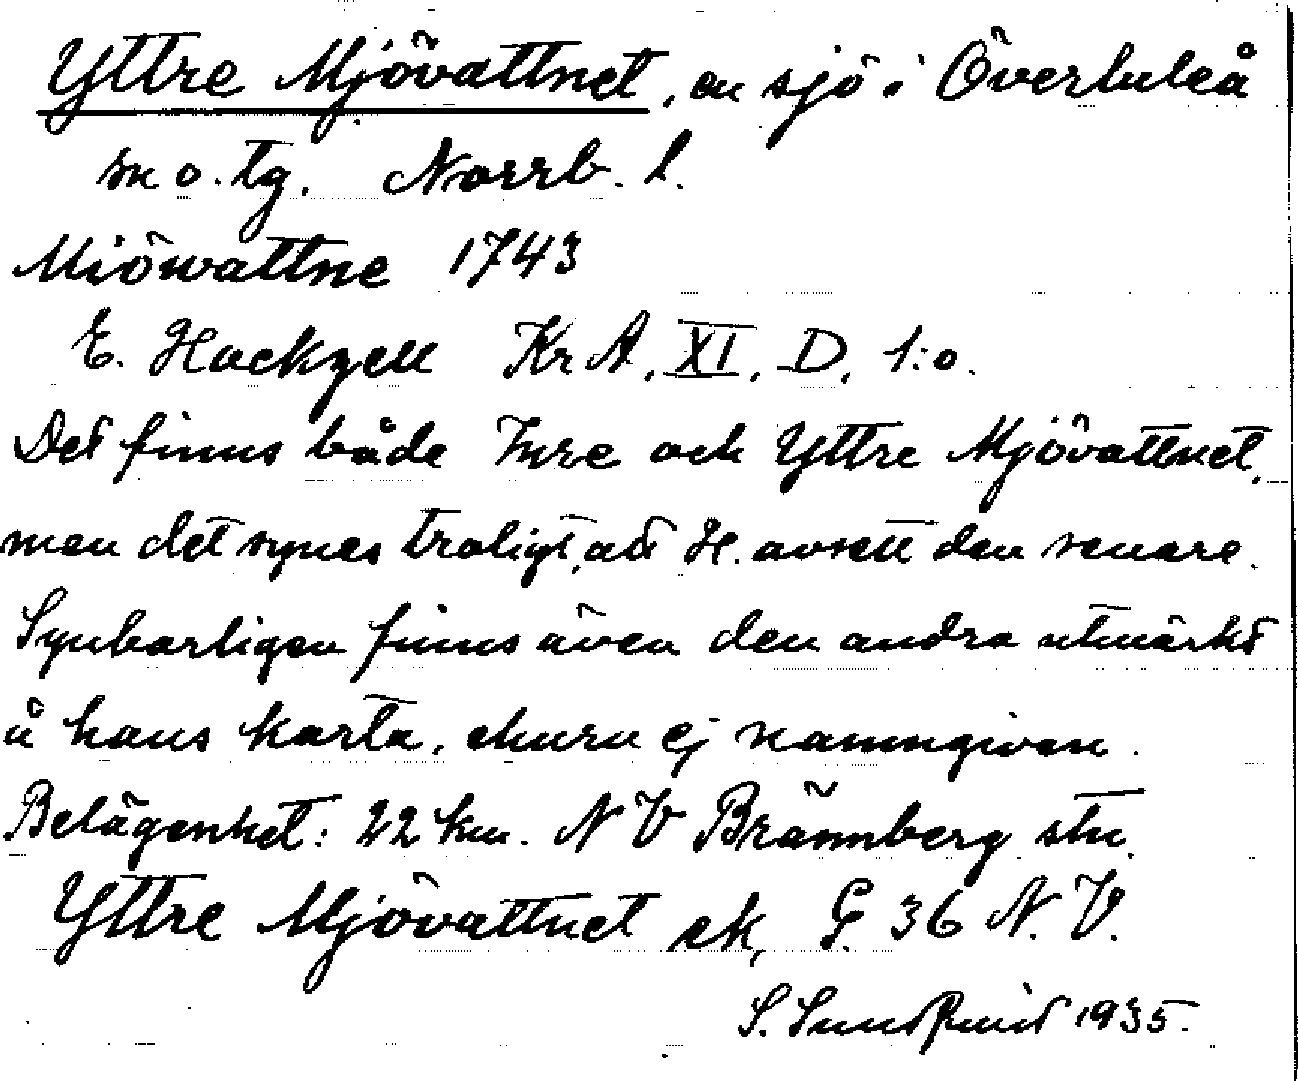 Yttre Mjövattnet, en sjö i Överluleå
sn o. tg. Norrb. l.
Miöwattne 1743
E. Hackzell Kr A. XI. D. 1:o.
Det finns både Inre och Yttre Mjövattnet,
men det synes troligt, att H. avsett den senare.
Synbarligen finns även den andra utmärkt
å hans karta, ehuru ej namngiven.
Belägenhet: 22 km. N V Brännberg stn.
Yttre Mjövattnet ek, G. 36 N. V.
S. Sundqvist 1935.